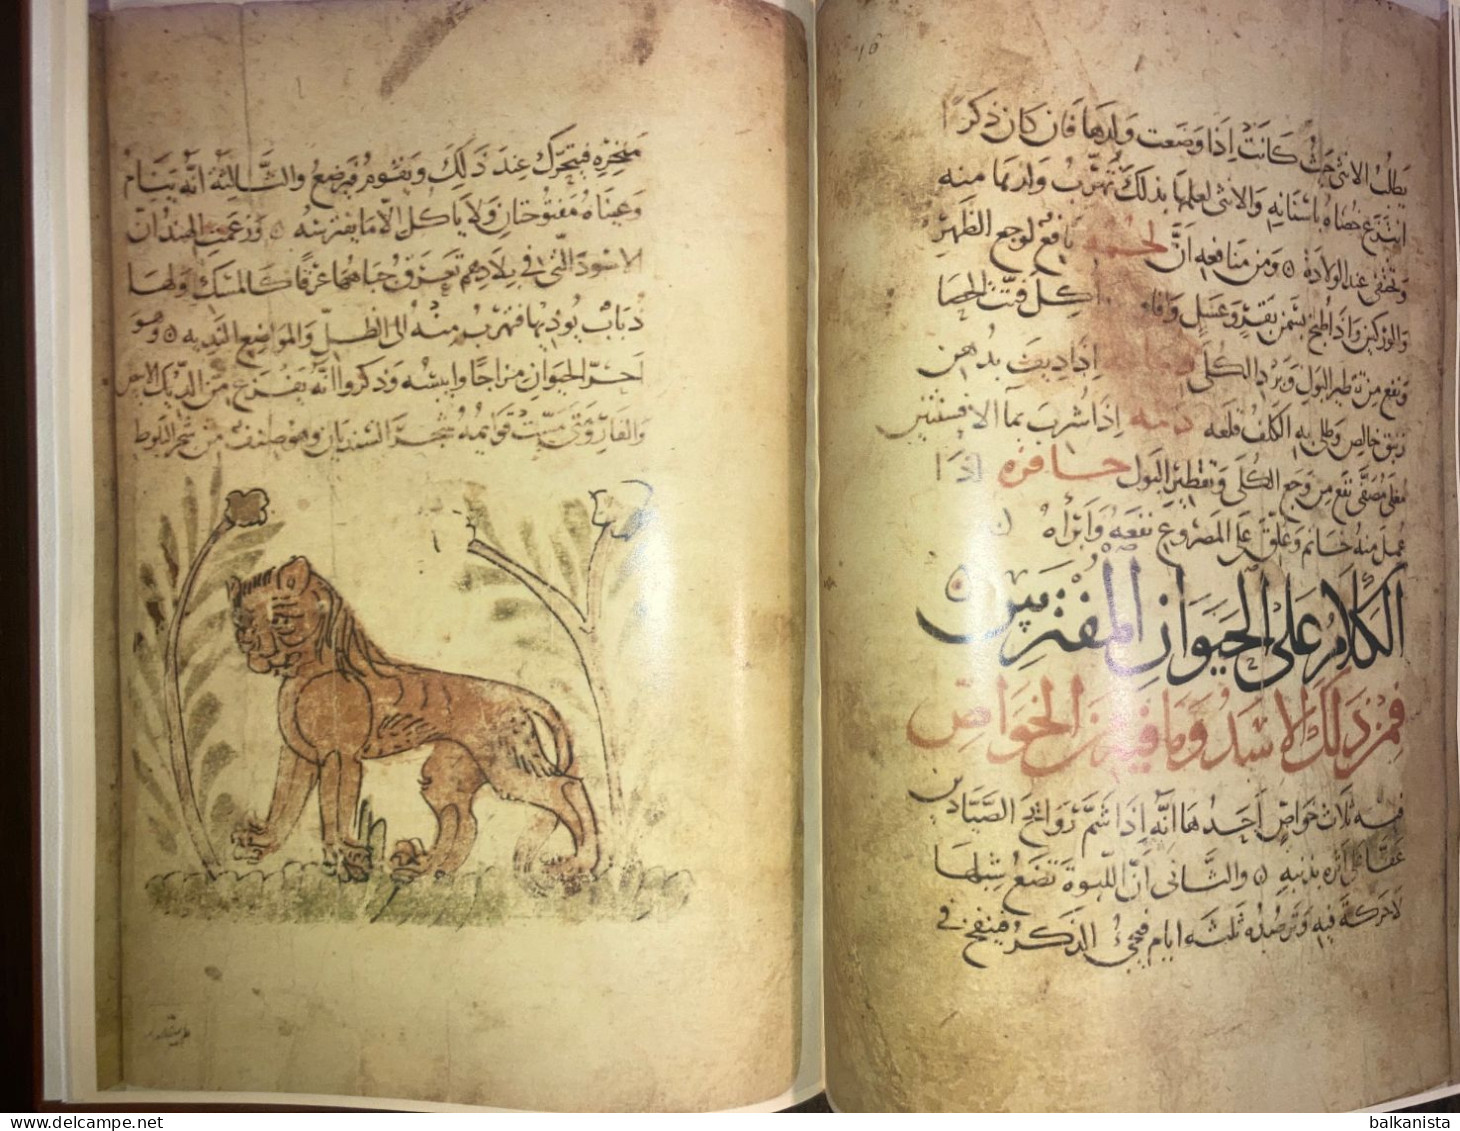 16
يطلب الانثى حيث كانت اذا وضعت ولدها فان كان ذكرا
انتزع خصاه باسنانه والانثى لعلمها بذلك تهرب ولدها منه
وتختفى عند الولادة ومن منافعه انَّ لحمه نافع لوجع الظهر
والوركين واذا طبخ بسمن بقر وعسل وافاه اكل فتت الحصا
ونفع من تقطير البول وبرد الكلى اذا ديف بدهن
زنبق خالص وطلى به الكلف قلعه دمه اذا شرب بما الافسنتين
مغلى مصفى نفع من وجع الكلى وتقطير البول حافره اذا
عمل منه خاتم وعلق على المصروع نفعه وابراه
الكلام على الحيوان المفترس
فمن ذلك الاسد وما فيه من الخواص
فيه ثلاث خواص احدها انه اذا شم روايح الصيادين
عفا على اثره بذنبه والثانى ان اللبوة تضع شبلها
لا حركة فيه وترصده ثلثه ايام فيجئ الذكر فينفخ فى
منخره فيتحرك عند ذلك ويقوم فيرضع والثالثة انه ينام
وعيناه مفتوحتان ولا ياكل الا ما يفترسه وزعمت الهند ان
الاسود التى فى بلادهم تعرق جباهها عرقا كالمسك ولها
ذباب يوذيها فتهرب منه الى الظل والمواضع الندية وهو
احر الحيوان مزاجا وايبسه وذكروا انه يفزع من الديك الابيض
والفار ومتى مست قوايمه شجر السنديان وهو صنف من شجر البلوط
balkanista